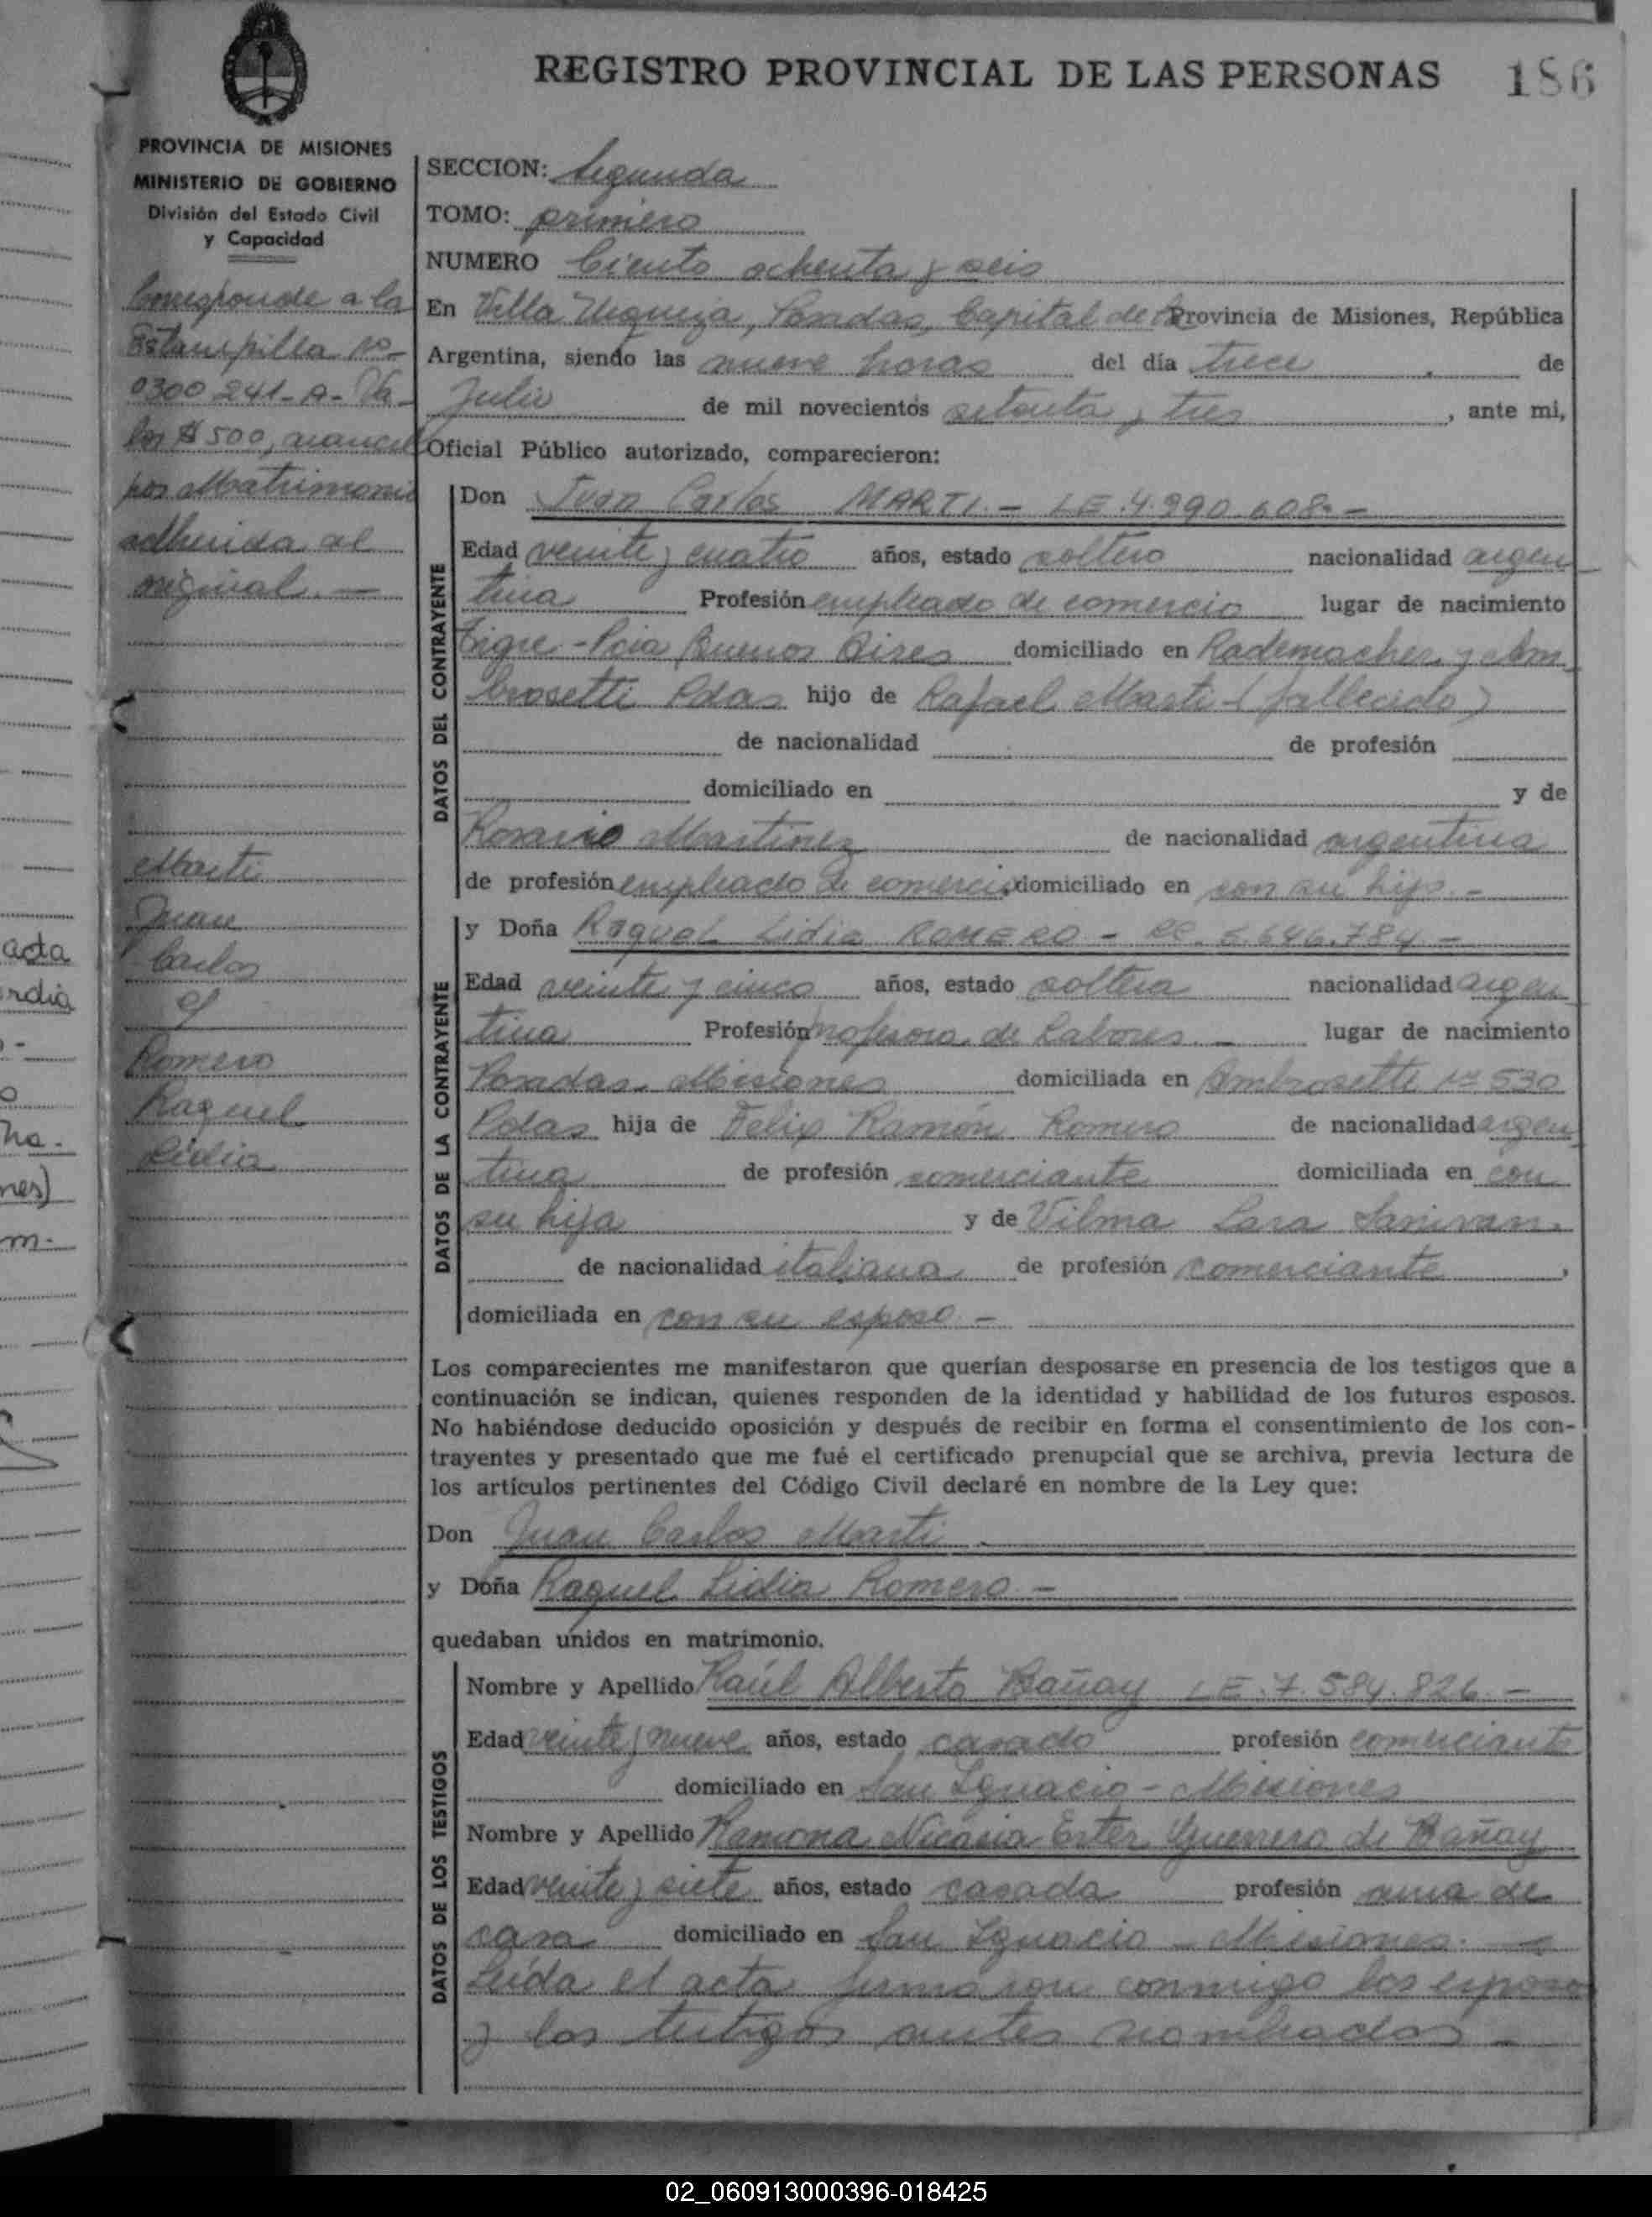 REGISTRO PROVINCIAL DE LAS PERSONAS 186
PROVINCIA DE MISIONES
MINISTERIO DE GOBIERNO
División del Estado Civil
y Capacidad
Corresponde a la
Estampilla No
0300241-A- Va-
lor $ 500, arancel
por Matrimonio
adherida al
original. —
Marti
Juan
Carlos
y
Romero
Raquel
Lidia
SECCION: Segunda
TOMO: primero
NUMERO Ciento ochenta y seis
En Villa Urquiza, Posadas, Capital de la Provincia de Misiones, República
Argentina, siendo las nueve horas del día trece de
Julio de mil novecientos setenta y tres, ante mi,
Oficial Público autorizado, comparecieron:
DATOS DEL CONTRAYENTE
Don Juan Carlos MARTI. - LE. 4.990.608. -
Edad veinte y cuatro años, estado soltero nacionalidad argen
tina Profesión empleado de comercio lugar de nacimiento
Tigre - Pcia Buenos Aires domiciliado en Rademacher y Am
brosetti Pdas hijo de Rafael Marti - (fallecido)
de nacionalidad de profesión
domiciliado en y de
Rosario Martinez de nacionalidad argentina
de profesión empleado de comercio domiciliado en con su hijo. -
DATOS DE LA CONTRAYENTE
y Doña Raquel Lidia ROMERO - 6.646.784 -
Edad veinte y cinco años, estado soltera nacionalidad argen
tina Profesión profesora de Labores. - lugar de nacimiento
Posadas. Misiones domiciliada en Ambrosetti No 530
Pdas hija de Felix Ramón Romero de nacionalidad argen
tina de profesión comerciante domiciliada en con
su hija y de Vilma Lara
de nacionalidad italiana de profesión comerciante,
domiciliada en con su esposo -
Los comparecientes me manifestaron que querían desposarse en presencia de los testigos que a
continuación se indican, quienes responden de la identidad y habilidad de los futuros esposos.
No habiéndose deducido oposición y después de recibir en forma el consentimiento de los con-
trayentes y presentado que me fué el certificado prenupcial que se archiva, previa lectura de
los artículos pertinentes del Código Civil declaré en nombre de la Ley que:
Don Juan Carlos Marti
y Doña Raquel Lidia Romero -
quedaban unidos en matrimonio.
DATOS DE LOS TESTIGOS
Nombre y Apellido Raúl Alberto Bañay LE. 7.584.826. -
Edad veinte y nueve años, estado casado profesión comerciante
domiciliado en San Ignacio - Misiones
Nombre y Apellido Ramona Nicasia Ester Guerrero de Bañay
Edad veinte y siete años, estado casada profesión ama de
casa domiciliado en San Ignacio - Misiones. -
Leída el acta firmaron conmigo los esposos
y los testigos antes nombrados -
acta
02_060913000396-018425